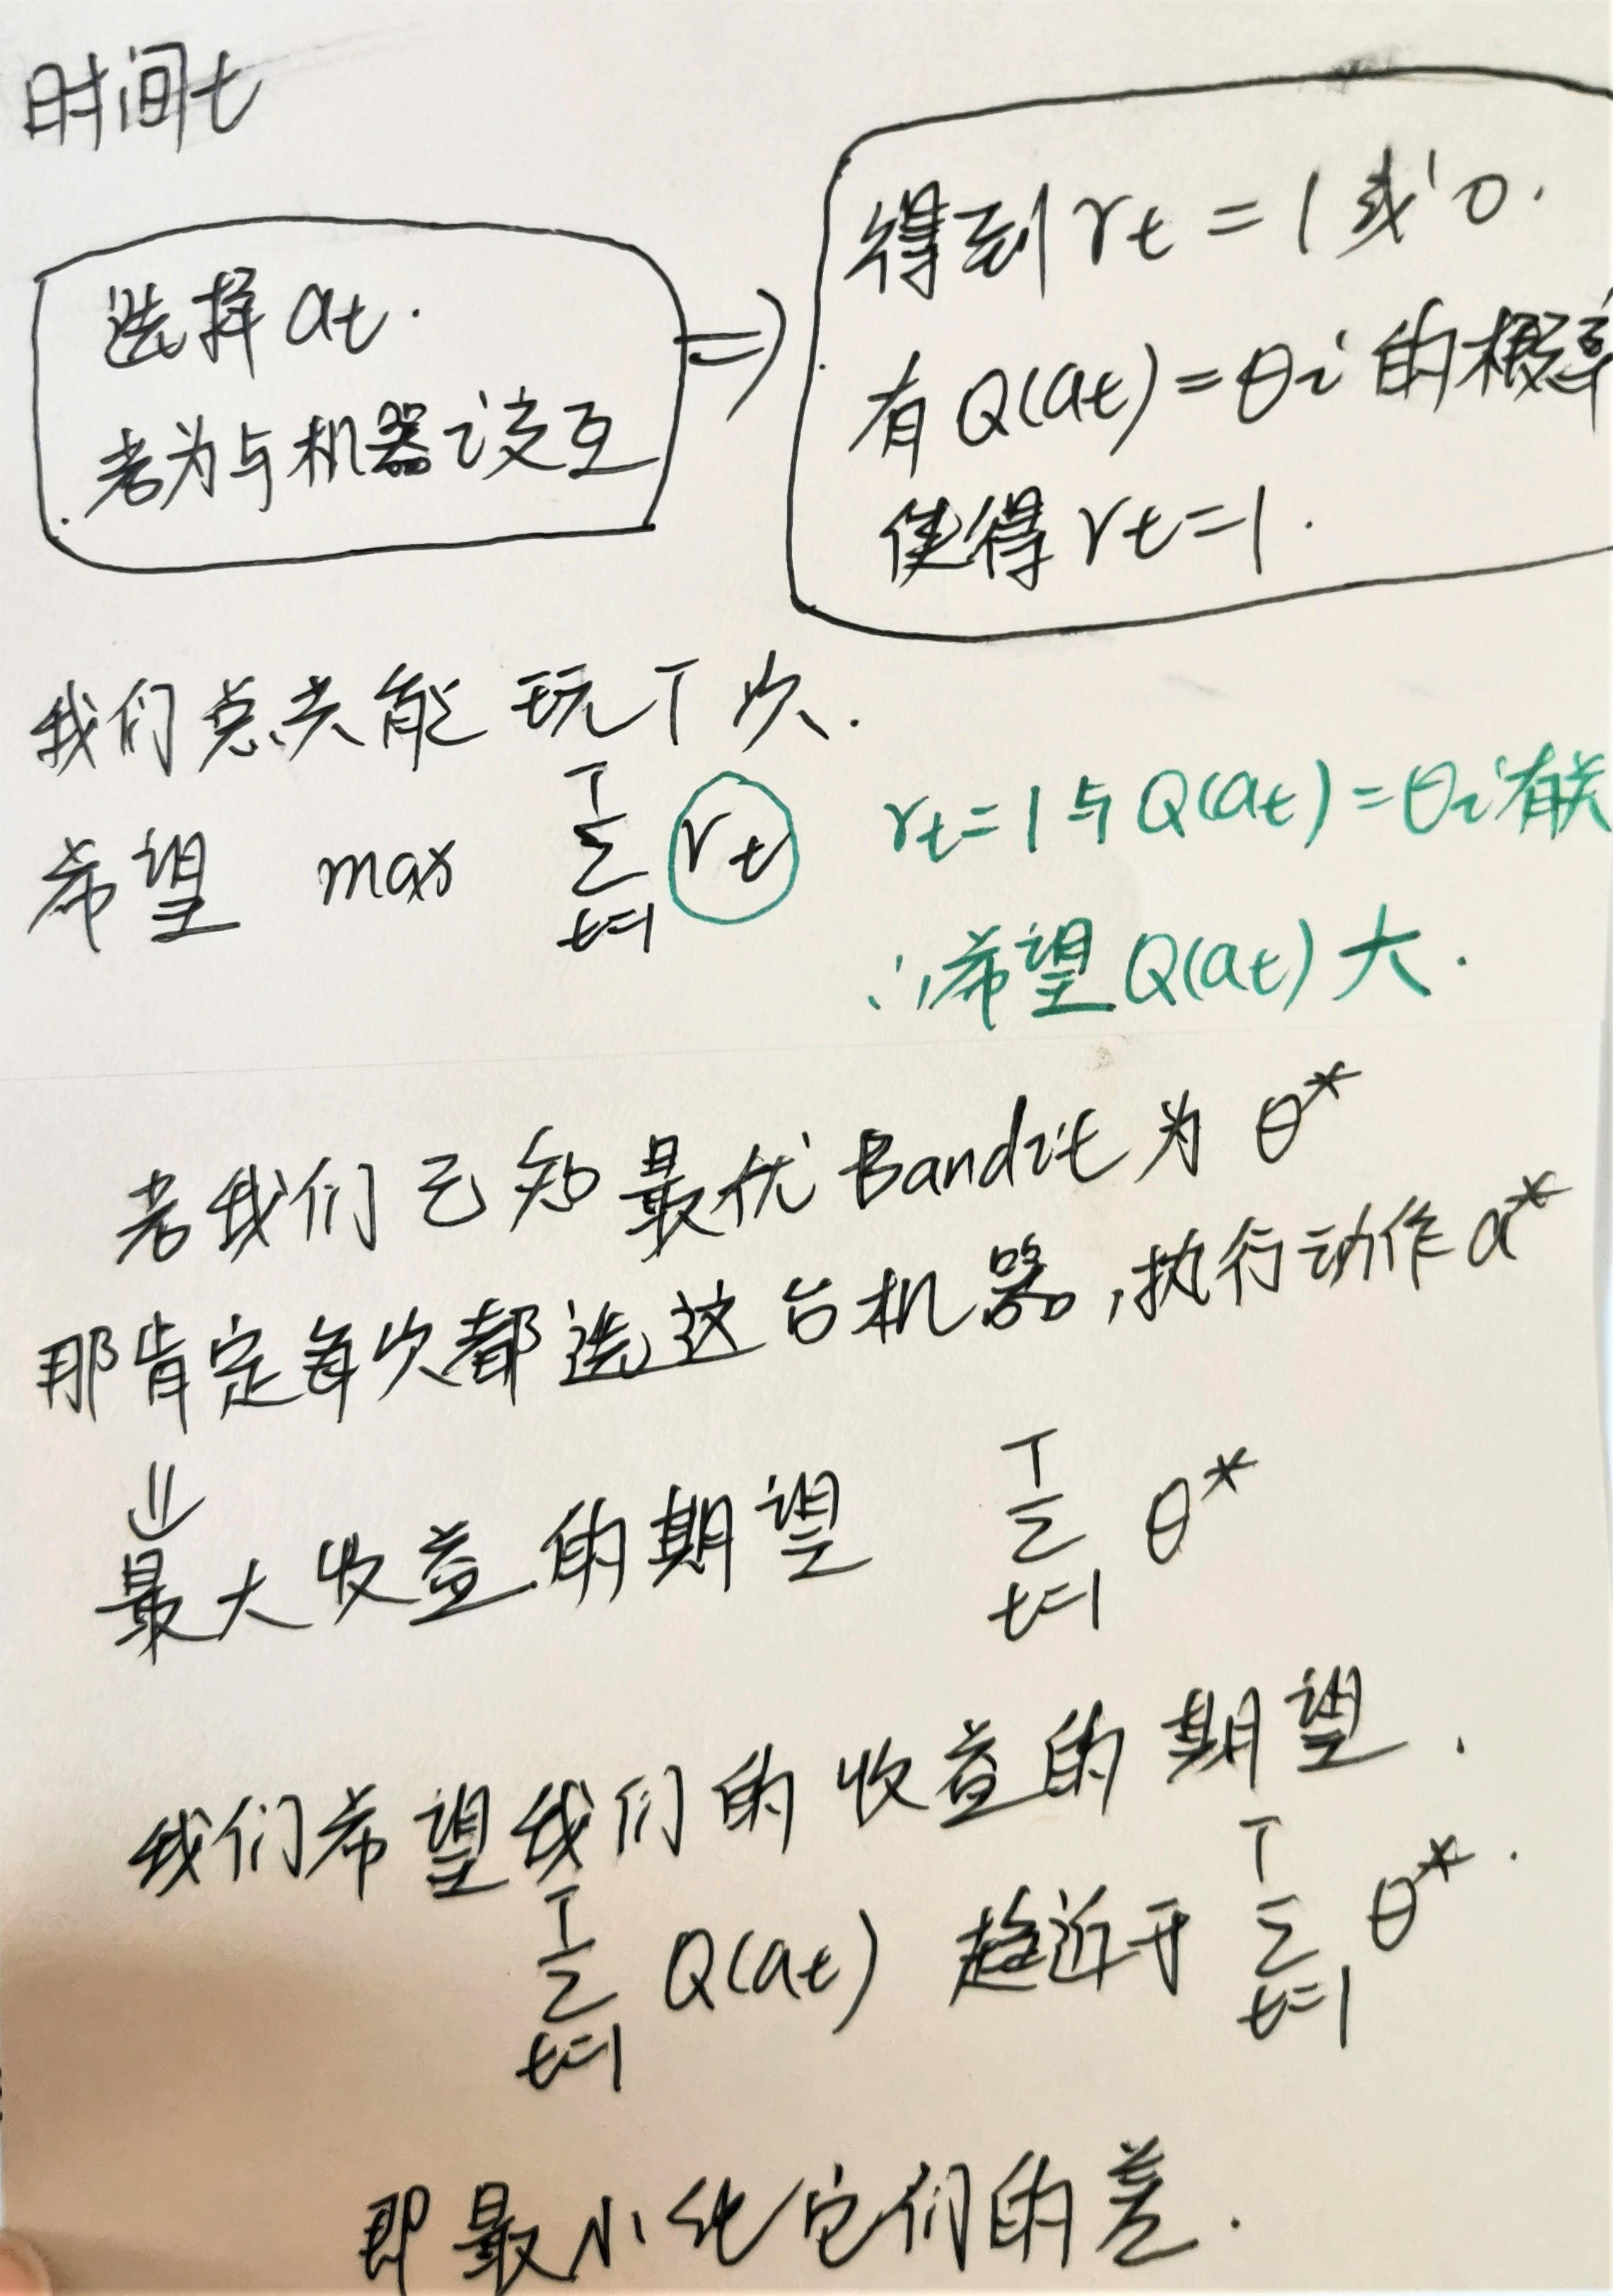 时间t
选择 at.
若为与机器i交互
⇒
得到 rt = 1 或 0.
有 Q(at) = θi 的概率
使得 rt=1.
我们总共能玩 T 次.
希望 max Σ_{t=1}^{T} rt
rt=1 与 Q(at) = θi 有关
∴希望 Q(at) 大.
若我们已知最优 Bandit 为 θ*
那肯定每次都选这台机器,执行动作 a*
⇓
最大收益的期望 Σ_{t=1}^{T} θ*
我们希望我们的收益的期望.
Σ_{t=1}^{T} Q(at) 趋近于 Σ_{t=1}^{T} θ*.
即最小化它们的差.